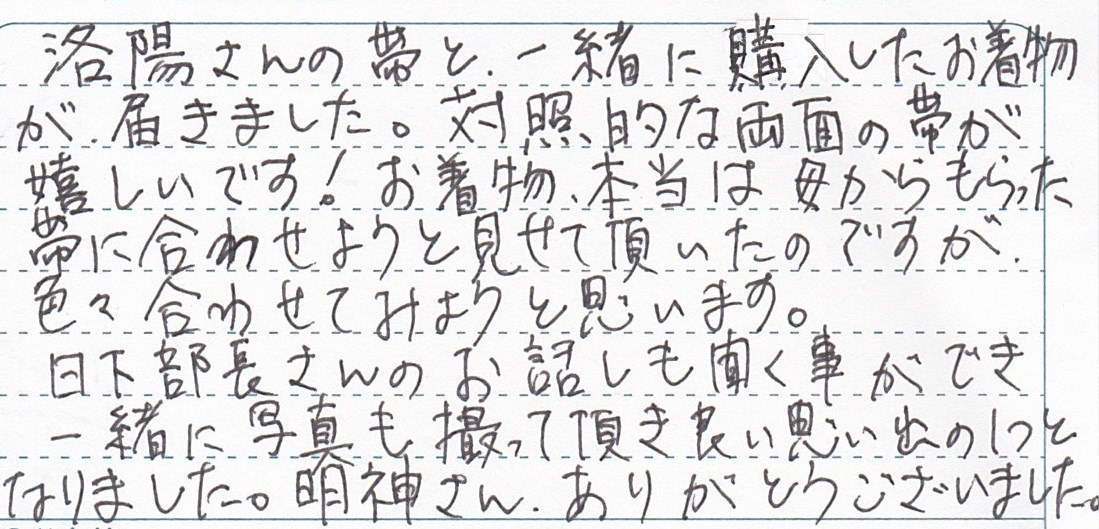 洛陽さんの帯と、一緒に購入したお着物
が、届きました。対照的な両面の帯が
嬉しいです!お着物、本当は母からもらった
帯に合わせようと見せて頂いたのですが、
色々合わせてみようと思います。
日下部長さんのお話しも聞く事ができ
一緒に写真も撮って頂き良い思い出の1つと
なりました。明神さん、ありがとうございました。